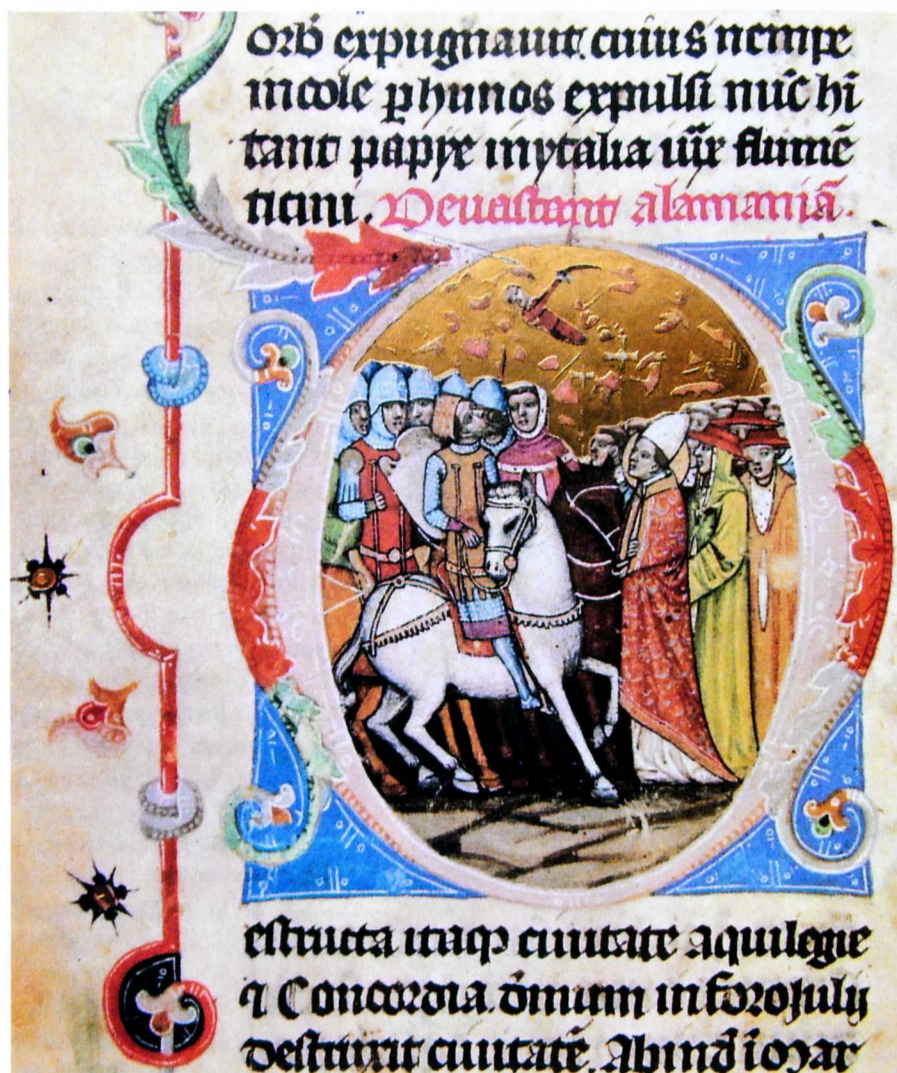 orb̄ expugnauit. cuius nempe
incole ꝑ hunos expulsi nūc hi
tant papye in ytalia iux̄ flumē
ticini. Deuastant alamaniā.
estructa itaqꝫ ciuitate aquilegie
⁊ Concordia. ōmium in foroiulij
destruxit ciuitatē. Ab ind̄